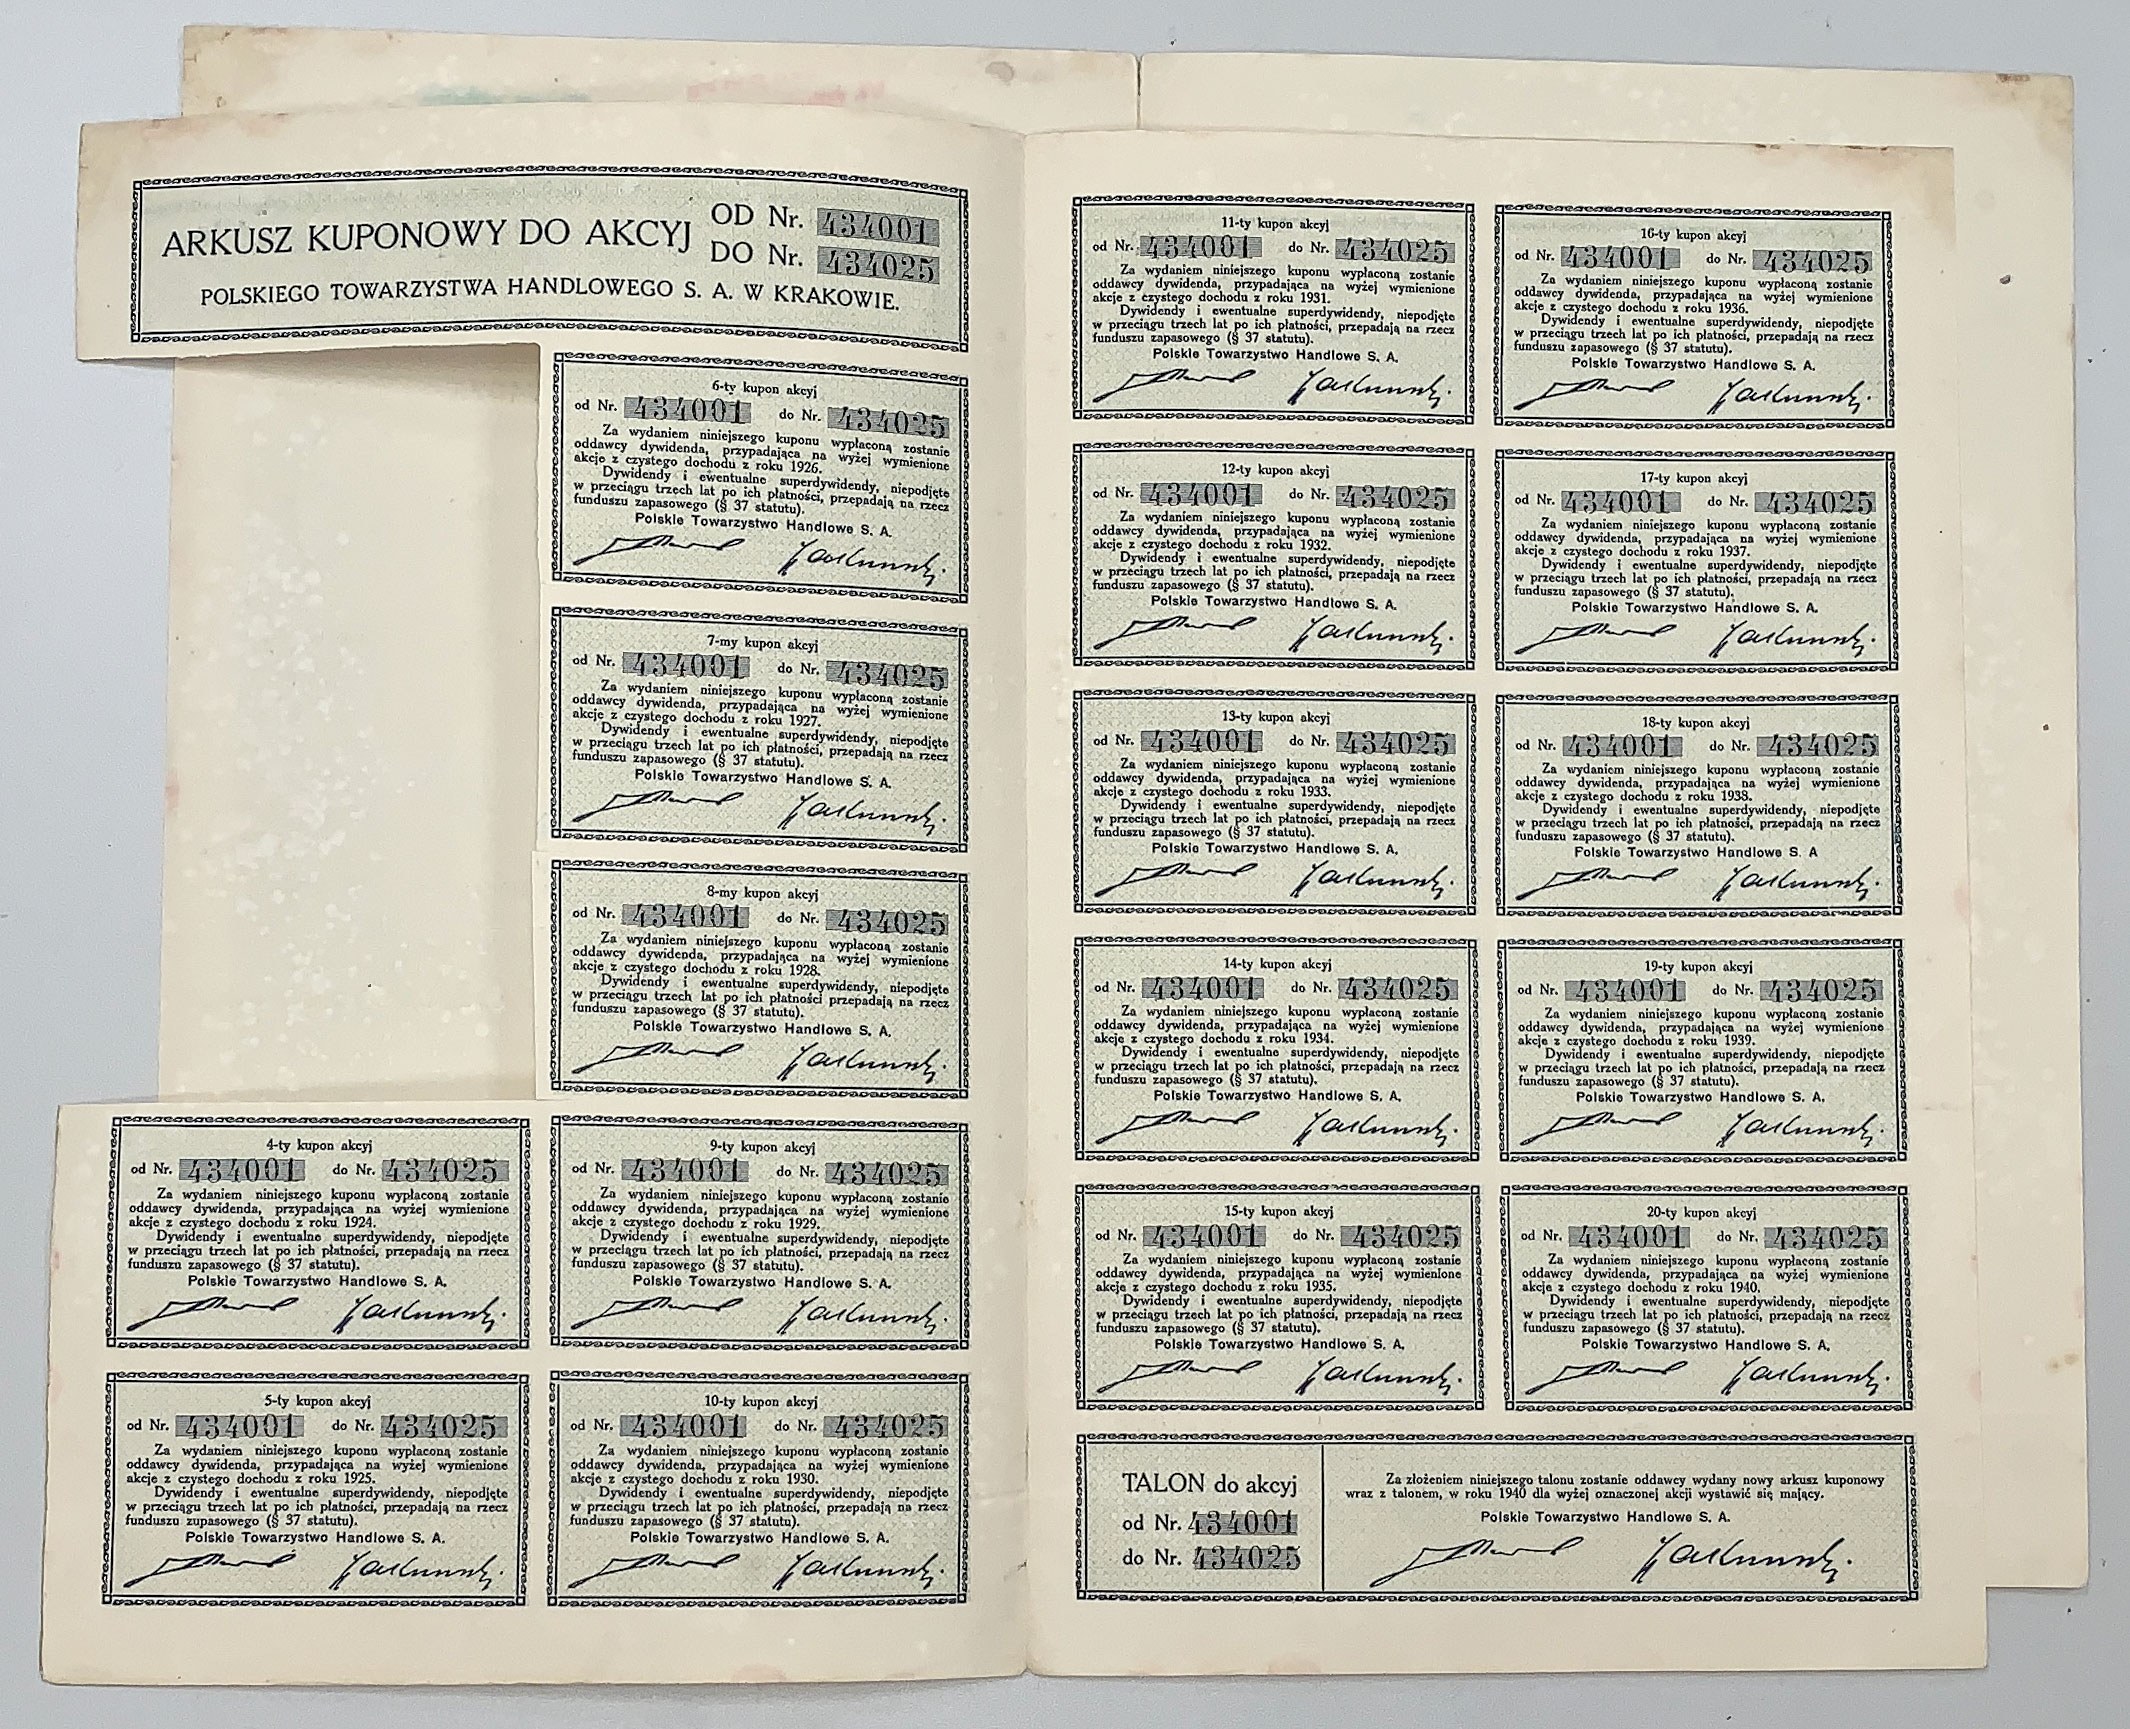 ARKUSZ KUPONOWY DO AKCYJ OD Nr. 434001
DO Nr. 434025
POLSKIEGO TOWARZYSTWA HANDLOWEGO S. A. W KRAKOWIE.
6-ty kupon akcyj
od Nr. 434001 do Nr. 434025
Za wydaniem niniejszego kuponu wypłaconą zostanie
oddawcy dywidenda, przypadająca na wyżej wymienione
akcje z czystego dochodu z roku 1926.
Dywidendy i ewentualne superdywidendy, niepodjęte
w przeciągu trzech lat po ich płatności, przepadają na rzecz
funduszu zapasowego (§ 37 statutu).
Polskie Towarzystwo Handlowe S. A.
7-my kupon akcyj
od Nr. 434001 do Nr. 434025
Za wydaniem niniejszego kuponu wypłaconą zostanie
oddawcy dywidenda, przypadająca na wyżej wymienione
akcje z czystego dochodu z roku 1927.
Dywidendy i ewentualne superdywidendy, niepodjęte
w przeciągu trzech lat po ich płatności, przepadają na rzecz
funduszu zapasowego (§ 37 statutu).
Polskie Towarzystwo Handlowe S. A.
8-my kupon akcyj
od Nr. 434001 do Nr. 434025
Za wydaniem niniejszego kuponu wypłaconą zostanie
oddawcy dywidenda, przypadająca na wyżej wymienione
akcje z czystego dochodu z roku 1928.
Dywidendy i ewentualne superdywidendy, niepodjęte
w przeciągu trzech lat po ich płatności przepadają na rzecz
funduszu zapasowego (§ 37 statutu).
Polskie Towarzystwo Handlowe S. A.
4-ty kupon akcyj
od Nr. 434001 do Nr. 434025
Za wydaniem niniejszego kuponu wypłaconą zostanie
oddawcy dywidenda, przypadająca na wyżej wymienione
akcje z czystego dochodu z roku 1924.
Dywidendy i ewentualne superdywidendy, niepodjęte
w przeciągu trzech lat po ich płatności, przepadają na rzecz
funduszu zapasowego (§ 37 statutu).
Polskie Towarzystwo Handlowe S. A.
9-ty kupon akcyj
od Nr. 434001 do Nr. 434025
Za wydaniem niniejszego kuponu wypłaconą zostanie
oddawcy dywidenda, przypadająca na wyżej wymienione
akcje z czystego dochodu z roku 1929.
Dywidendy i ewentualne superdywidendy, niepodjęte
w przeciągu trzech lat po ich płatności, przepadają na rzecz
funduszu zapasowego (§ 37 statutu).
Polskie Towarzystwo Handlowe S. A.
5-ty kupon akcyj
od Nr. 434001 do Nr. 434025
Za wydaniem niniejszego kuponu wypłaconą zostanie
oddawcy dywidenda, przypadająca na wyżej wymienione
akcje z czystego dochodu z roku 1925.
Dywidendy i ewentualne superdywidendy, niepodjęte
w przeciągu trzech lat po ich płatności, przepadają na rzecz
funduszu zupasowego (§ 37 statutu).
Polskie Towarzystwo Handlowe S. A.
10-ty kupon akcyj
od Nr. 434001 do Nr. 434025
Za wydaniem niniejszego kuponu wypłaconą zostanie
oddawcy dywidenda, przypadająca na wyżej wymienione
akcje z czystego dochodu z roku 1930.
Dywidendy i ewentualne superdywidendy, niepodjęte
w przeciągu trzech lat po ich płatności, przepadają na rzecz
funduszu zapasowego (§ 37 statutu).
Polskie Towarzystwo Handlowe S. A.
11-ty kupon akcyj
od Nr. 434001 do Nr. 434025
Za wydaniem niniejszego kuponu wypłaconą zostanie
oddawcy dywidenda, przypadająca na wyżej wymienione
akcje z czystego dochodu z roku 1931.
Dywidendy i ewentualne superdywidendy, niepodjęte
w przeciągu trzech lat po ich płatności, przepadają na rzecz
funduszu zapasowego (§ 37 statutu).
Polskie Towarzystwo Handlowe S. A.
16-ty kupon akcyj
od Nr. 434001 do Nr. 434025
Za wydaniem niniejszego kuponu wypłaconą zostanie
oddawcy dywidenda, przypadająca na wyżej wymienione
akcje z czystego dochodu z roku 1936.
Dywidendy i ewentualne superdywidendy, niepodjęte
w przeciągu trzech lat po ich płatności, przepadają na rzecz
funduszu zapasowego (§ 37 statutu).
Polskie Towarzystwo Handlowe S. A.
12-ty kupon akcyj
od Nr. 434001 do Nr. 434025
Za wydaniem niniejszego kuponu wypłaconą zostanie
oddawcy dywidenda, przypadająca na wyżej wymienione
akcje z czystego dochodu z roku 1932.
Dywidendy i ewentualne superdywidendy, niepodjęte
w przeciągu trzech lat po ich płatności, przepadają na rzecz
funduszu zapasowego (§ 37 statutu).
Polskie Towarzystwo Handlowe S. A.
17-ty kupon akcyj
od Nr. 434001 do Nr. 434025
Za wydaniem niniejszego kuponu wypłaconą zostanie
oddawcy dywidenda, przypadająca na wyżej wymienione
akcje z czystego dochodu z roku 1937.
Dywidendy i ewentualne superdywidendy, niepodjęte
w przeciągu trzech lat po ich płatności, przepadają na rzecz
funduszu zapasowego (§ 37 statutu).
Polskie Towarzystwo Handlowe S. A.
13-ty kupon akcyj
od Nr. 434001 do Nr. 434025
Za wydaniem niniejszego kuponu wypłaconą zostanie
oddawcy dywidenda, przypadająca na wyżej wymienione
akcje z czystego dochodu z roku 1933.
Dywidendy i ewentualne superdywidendy, niepodjęte
w przeciągu trzech lat po ich płatności, przepadają na rzecz
funduszu zapasowego (§ 37 statutu).
Polskie Towarzystwo Handlowe S. A.
18-ty kupon akcyj
od Nr. 434001 do Nr. 434025
Za wydaniem niniejszego kuponu wypłaconą zostanie
oddawcy dywidenda, przypadająca na wyżej wymienione
akcje z czystego dochodu z roku 1938.
Dywidendy i ewentualne superdywidendy, niepodjęte
w przeciągu trzech lat po ich płatności, przepadają na rzecz
funduszu zapasowego (§ 37 statutu).
Polskie Towarzystwo Handlowe S. A
14-ty kupon akcyj
od Nr. 434001 do Nr. 434025
Za wydaniem niniejszego kuponu wypłaconą zostanie
oddawcy dywidenda, przypadająca na wyżej wymienione
akcje z czystego dochodu z roku 1934.
Dywidendy i ewentualne superdywidendy, niepodjęte
w przeciągu trzech lat po ich płatności, przepadają na rzecz
funduszu zapasowego (§ 37 statutu).
Polskie Towarzystwo Handlowe S. A.
19-ty kupon akcyj
od Nr. 434001 do Nr. 434025
Za wydaniem niniejszego kuponu wypłaconą zostanie
oddawcy dywidenda, przypadająca na wyżej wymienione
akcje z czystego dochodu z roku 1939.
Dywidendy i ewentualne superdywidendy, niepodjęte
w przeciągu trzech lat po ich płatności, przepadają na rzecz
funduszu zapasowego (§ 37 statutu).
Polskie Towarzystwo Handlowe S. A.
15-ty kupon akcyj
od Nr. 434001 do Nr. 434025
Za wydaniem niniejszego kuponu wypłaconą zostanie
oddawcy dywidenda, przypadająca na wyżej wymienione
akcje z czystego dochodu z roku 1935.
Dywidendy i ewentualne superdywidendy, niepodjęte
w przeciągu trzech lat po ich płatności, przepadają na rzecz
funduszu zapasowego (§ 37 statutu).
Polskie Towarzystwo Handlowe S. A.
20-ty kupon akcyj
od Nr. 434001 do Nr. 434025
Za wydaniem niniejszego kuponu wypłaconą zostanie
oddawcy dywidenda, przypadająca na wyżej wymienione
akcje z czystego dochodu z roku 1940.
Dywidendy i ewentualne superdywidendy, niepodjęte
w przeciągu trzech lat po ich płatności, przepadają na rzecz
funduszu zapasowego (§ 37 statutu).
Polskie Towarzystwo Handlowe S. A.
TALON do akcyj
od Nr. 434001
do Nr. 434025
Za złożeniem niniejszego talonu zostanie oddawcy wydany nowy arkusz kuponowy
wraz z talonem, w roku 1940 dla wyżej oznaczonej akcji wystawić się mający.
Polskie Towarzystwo Handlowe S. A.